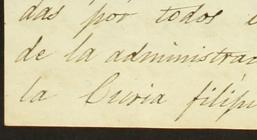 das por todos
de la administrac
la Curia filípi